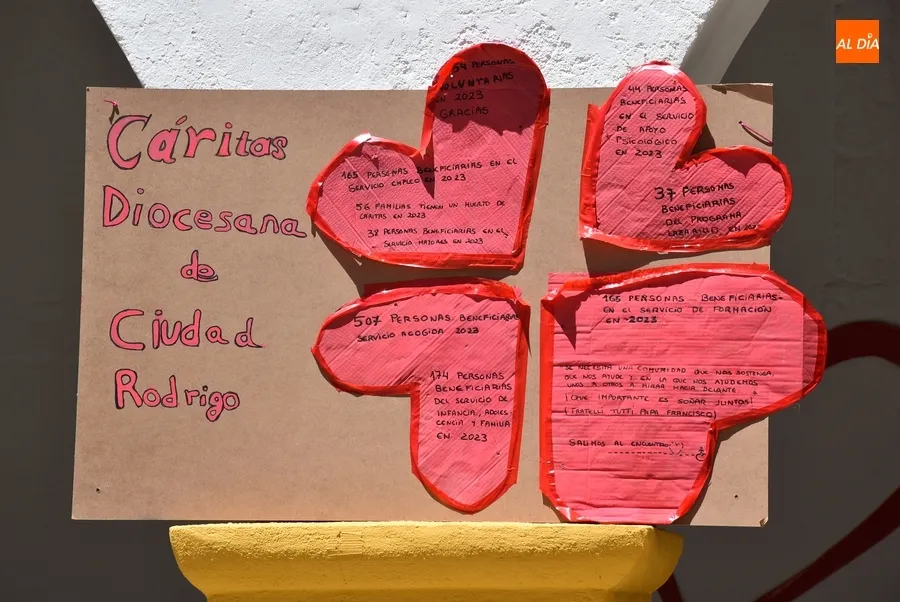 AL DÍA
Cáritas
Diocesana
de
Ciudad
Rodrigo
PERSONAS
VOLUNTARIAS
EN 2023
GRACIAS
165 PERSONAS BENEFICIARIAS EN EL
SERVICIO EMPLEO EN 2023
56 FAMILIAS TIENEN UN HUERTO DE
CÁRITAS EN 2023
38 PERSONAS BENEFICIARIAS EN EL
SERVICIO MAYORES EN 2023
44 PERSONAS
BENEFICIARIAS
EN EL SERVICIO
DE APOYO
PSICOLÓGICO
EN 2023
37 PERSONAS
BENEFICIARIAS
DEL PROGRAMA
LAZARILLO EN
507 PERSONAS BENEFICIARIAS
SERVICIO ACOGIDA 2023
174 PERSONAS
BENEFICIARIAS
DEL SERVICIO DE
INFANCIA, ADOLES-
CENCIA Y FAMILIA
EN 2023
165 PERSONAS BENEFICIARIAS
EN EL SERVICIO DE FORMACIÓN
EN 2023
SE NECESITA UNA COMUNIDAD QUE NOS SOSTENGA,
QUE NOS AYUDE Y EN LA QUE NOS AYUDEMOS
UNOS A OTROS A MIRAR HACIA DELANTE.
¡QUE IMPORTANTE ES SOÑAR JUNTOS!
(FRATELLI TUTTI PAPA FRANCISCO)
SALIMOS AL ENCUENTRO